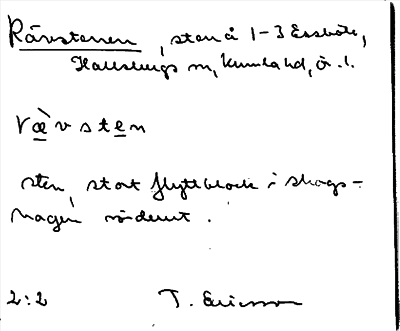 Rävstenen, sten å 1-3 Essböle,
Hallsbergs sn, Kumla hd, ö. l.
ræ̀vsten
sten, stort flyttblock i skogs-
hagen nordnut.
2:2 T. Ericsson